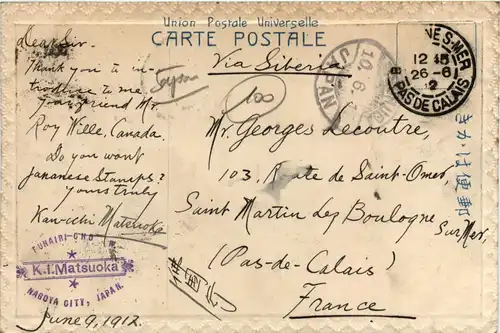 Union Postale Universelle
CARTE POSTALE
Via Siberia
Dear Sir.
Thank you to in-
troduce to me
your friend Mr.
Roy Wille, Canada.
Do you want
Jananese Stamps?
Yours truly
Kan-ichi Matsuoka
K.I. Matsuoka
NAGOYA CITY, JAPAN.
June 9, 1912.
Japon
100
JAPAN
10.6.
NE S-MER
12 15
26-6
PAS DE CALAIS
Mr. Georges Lecoutre,
103, Route de Saint-Omer,
Saint Martin Les Boulogne
Sur Mer,
(Pas-de-Calais)
France
きかは便郵